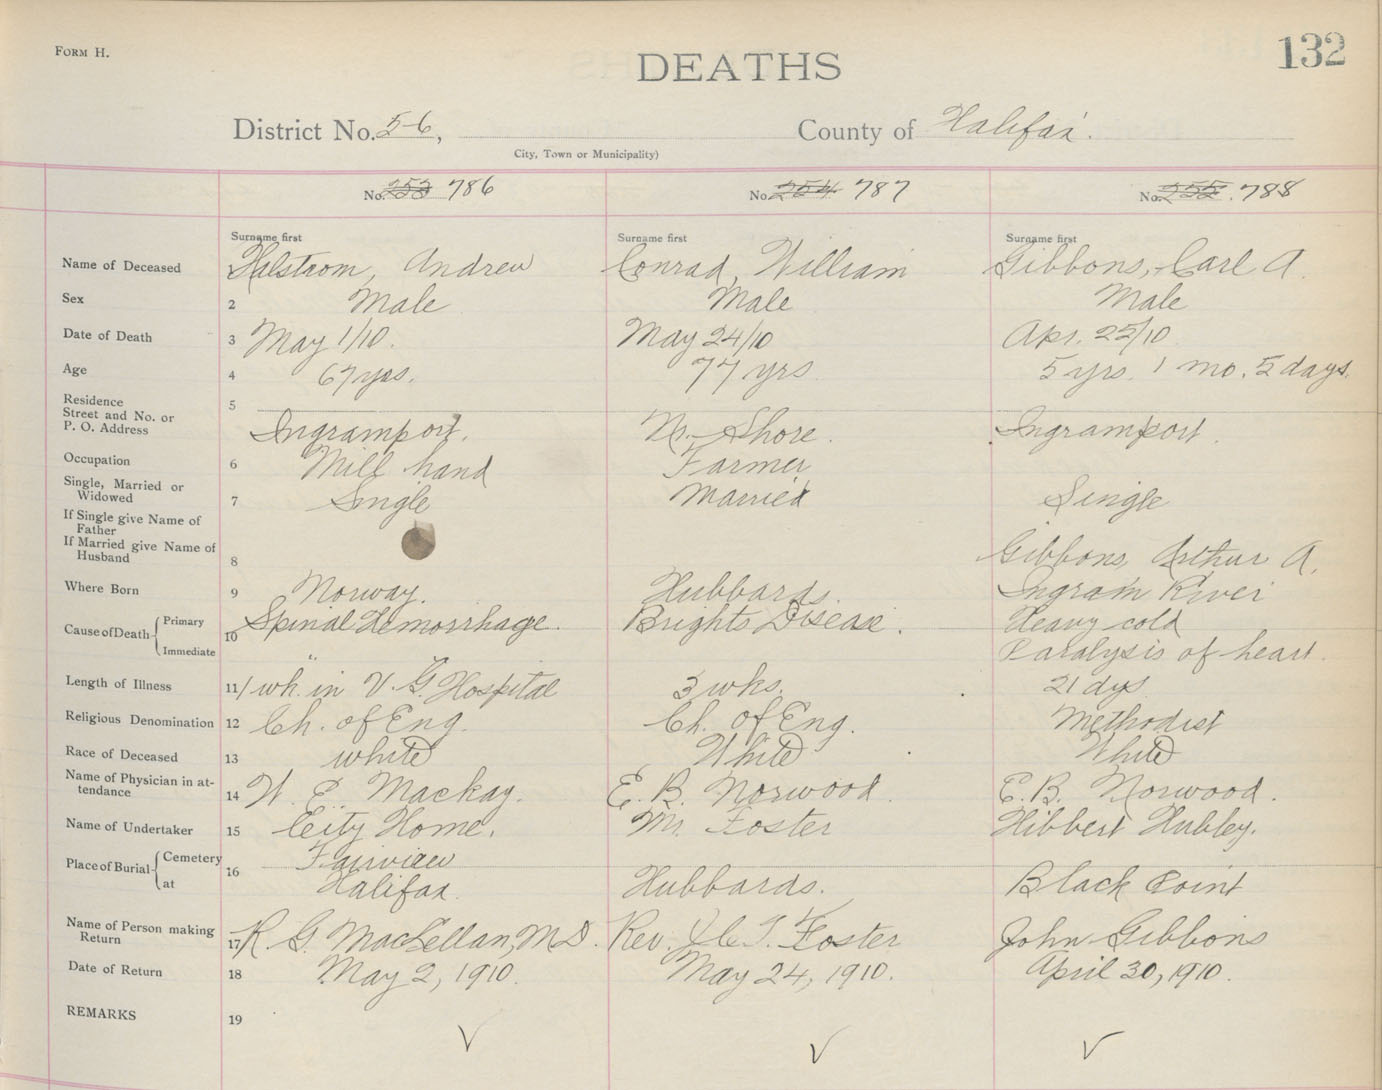 FORM H.
132
DEATHS
District No. 56, County of Halifax.
City, Town or Municipality)
No. 253 786 No. 254 787 No. 255 788
Surname first Surname first Surname first
Name of Deceased Halstrom, Andrew Conrad, William Gibbons, Carl A.
Sex 2 Male Male Male
Date of Death 3 May 1/10. May 24/10 Apr. 25/10
Age 4 67 yrs. 77 yrs 5 yrs. 1 mo. 5 days.
Residence 5
Street and No. or
P. O. Address Ingramport. N. Shore. Ingramport.
Occupation 6 Mill hand Farmer
Single, Married or
Widowed 7 Single Married Single
If Single give Name of
Father
If Married give Name of
Husband 8 Gibbons, Arthur A.
Where Born 9 Norway. Hubbards. Ingram River
Cause of Death Primary 10 Spinal Hemorrhage. Brights Disease. Heavy cold
Immediate " " Paralysis of heart.
Length of Illness 11 1 wk. in V. G. Hospital 3 wks. 21 dys
Religious Denomination 12 Ch. of Eng. Ch. of Eng. Methodist
Race of Deceased 13 white White White
Name of Physician in at-
tendance 14 W. E. Mackay. E. B. Norwood. E. B. Norwood.
Name of Undertaker 15 City Home. Mr. Foster Hibbert Hubley.
Place of Burial Cemetery 16 Fairview
at Halifax. Hubbards. Black Point
Name of Person making
Return 17 K. G. MacLellan, M.D. Rev. Foster John Gibbons
Date of Return 18 May 2, 1910. May 24, 1910. April 30, 1910.
REMARKS 19